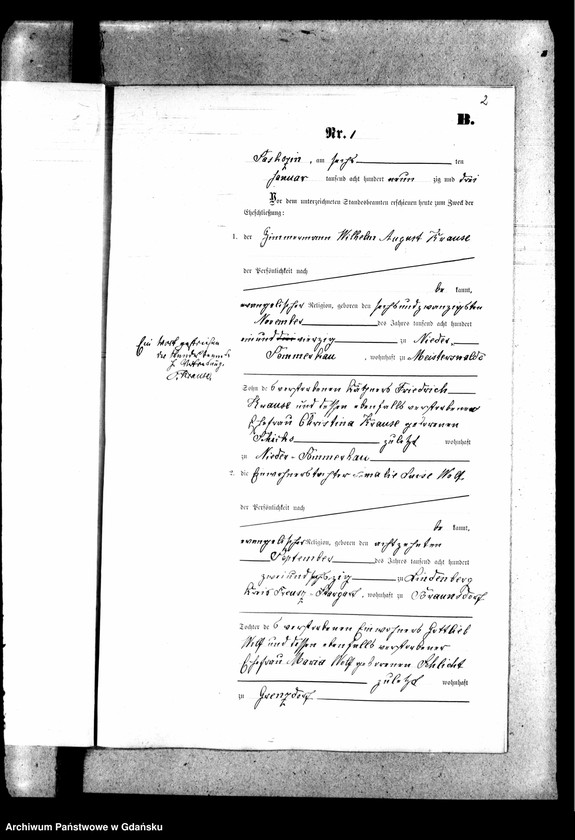 2
B.
Nr. 1
am sechs ten
Januar tausend acht hundert neun zig und drei
Vor dem unterzeichneten Standesbeamten erschienen heute zum Zweck der
Eheschließung:
1. der Zimmermann Wilhelm August Krause
der Persönlichkeit nach
be kannt,
evangelischer Religion, geboren den sechsundzwanzigsten
November des Jahres tausend acht hundert
einund vierzig zu Nieder-
Sommerkau, wohnhaft zu Meisterswalde
Ein Wort gestrichen
der Standesbeamte
Krause
Sohn des verstorbenen Käthners Friedrich
Krause und dessen ebenfalls verstorbenen
Ehefrau Christina Krause geborenen
zuletzt wohnhaft
zu Nieder-Sommerkau
2. die Einwohnertochter Amalie Luise Wolf
der Persönlichkeit nach
be kannt,
evangelischer Religion, geboren den achtzehnten
September des Jahres tausend acht hundert
zweiundsechzig zu Lindenberg
Kreis Preusz-Stargart, wohnhaft zu Braunsdorf
Tochter des verstorbenen Einwohners Gottlieb
Wolf und dessen ebenfalls verstorbener
Ehefrau Maria Wolf geborenen Schlicht
zuletzt wohnhaft
zu Grenzdorf
Archiwum Państwowe w Gdańsku